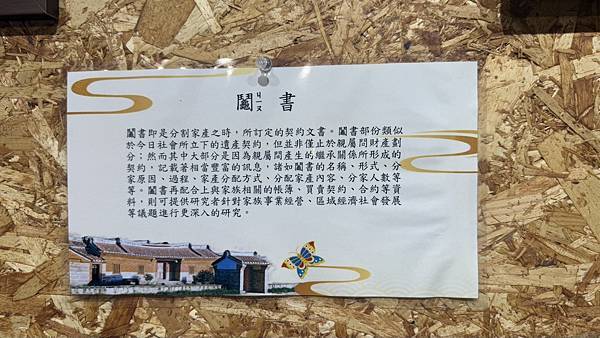 鬮ㄐㄧㄡ書
鬮書即是分割家產之時，所訂定的契約文書。鬮書部份類似
於今日社會所立下的遺產契約，但並非僅止於親屬間財產劃
分；然而其中大部分是因為親屬間產生的繼承關係所形成的
契約，記載著相當豐富的訊息，諸如鬮書的名稱、形式、分
家原因、過程、家產分配方式、分配家產內容、分家人數等
等。鬮書再配合上與家族相關的帳簿、買賣契約、合約等資
料，則可提供研究者針對家族事業經營、區域經濟社會發展
等議題進行更深入的研究。